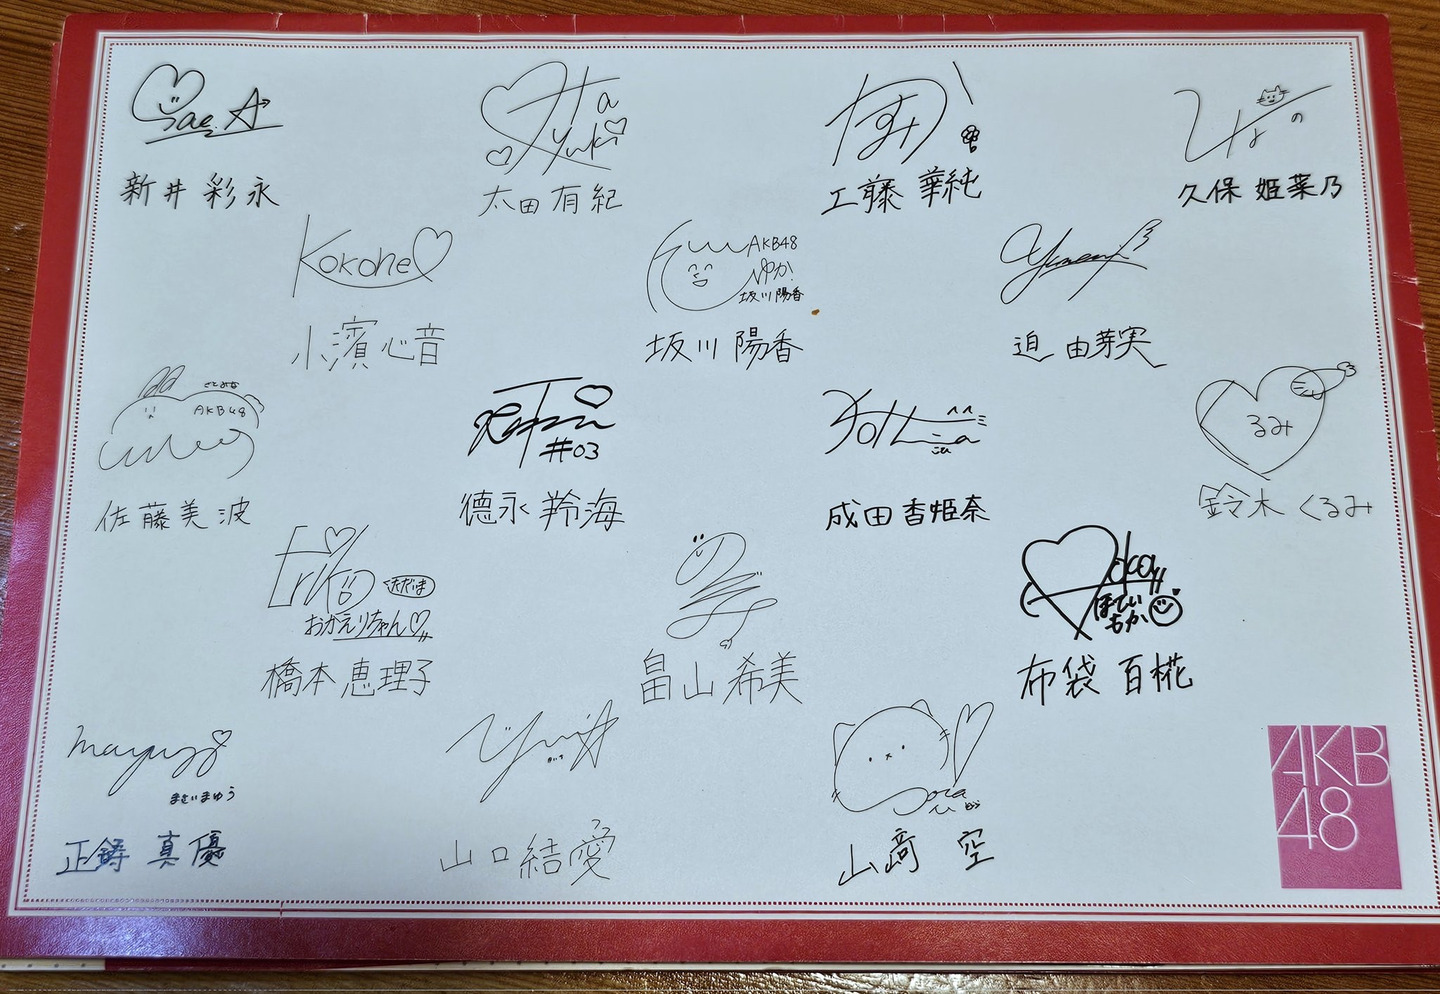 Sae.A
新井 彩永
Yuki
太田 有紀
かすみ
工藤 華純
ひなの
久保 姫菜乃
Kokone
小濱心音
AKB48
ゆか
坂川陽香
坂川 陽香
Yumemi
迫 由芽実
さとみな
AKB48
佐藤美波
#03
德永羚海
成田香姫奈
るみ
鈴木くるみ
Eriko
ただいま
おかえりちゃん
橋本恵理子
畠山希美
Moka
ほてい
もか
布袋 百椛
mayuu
まさいまゆう
正鋳 真優
Yui
山口結愛
Sora
山﨑 空
AKB
48